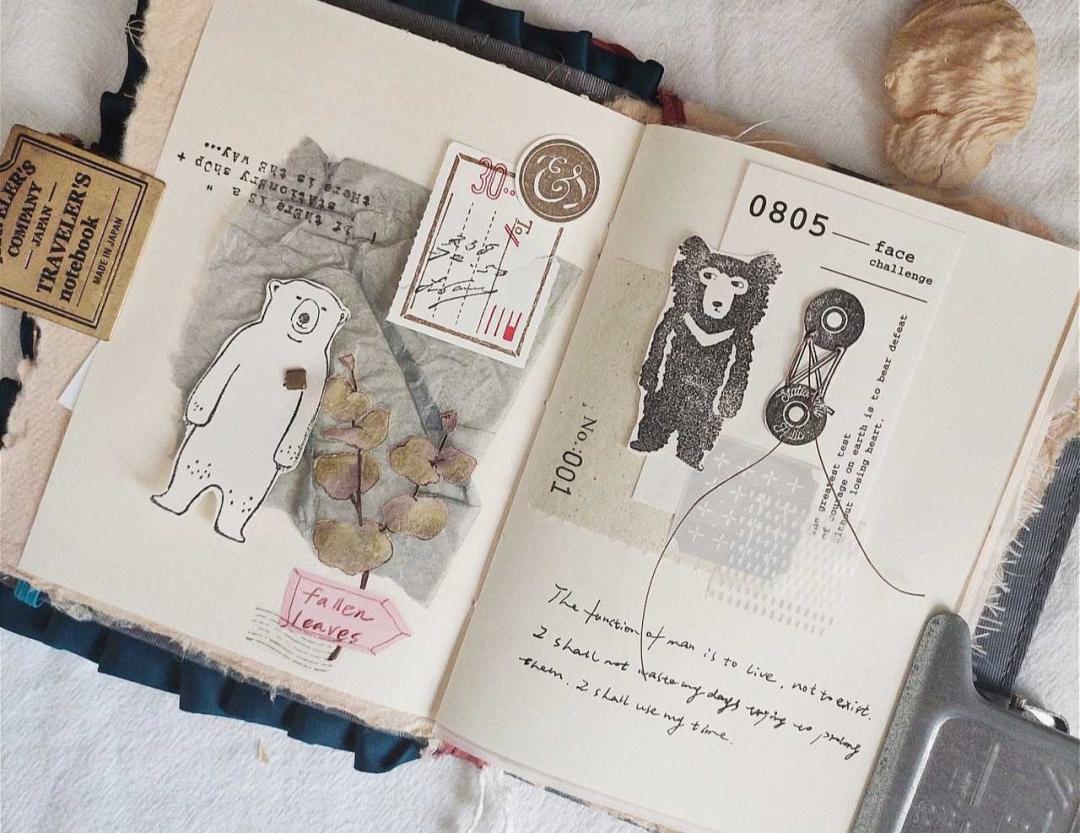 COMPANY
JAPAN
TRAVELER'S
notebook
MADE IN JAPAN
if tHere is a "
stAtionery shop +
tHere is tHE wAy...
30..
To
&
fallen
leaves
0805 — face
challenge
greatest test
of courage on earth is to bear defeat
without losing heart.
No.:001
The function of man is to live, not to exist.
I shall not waste my days trying to prolong
them. I shall use my time.